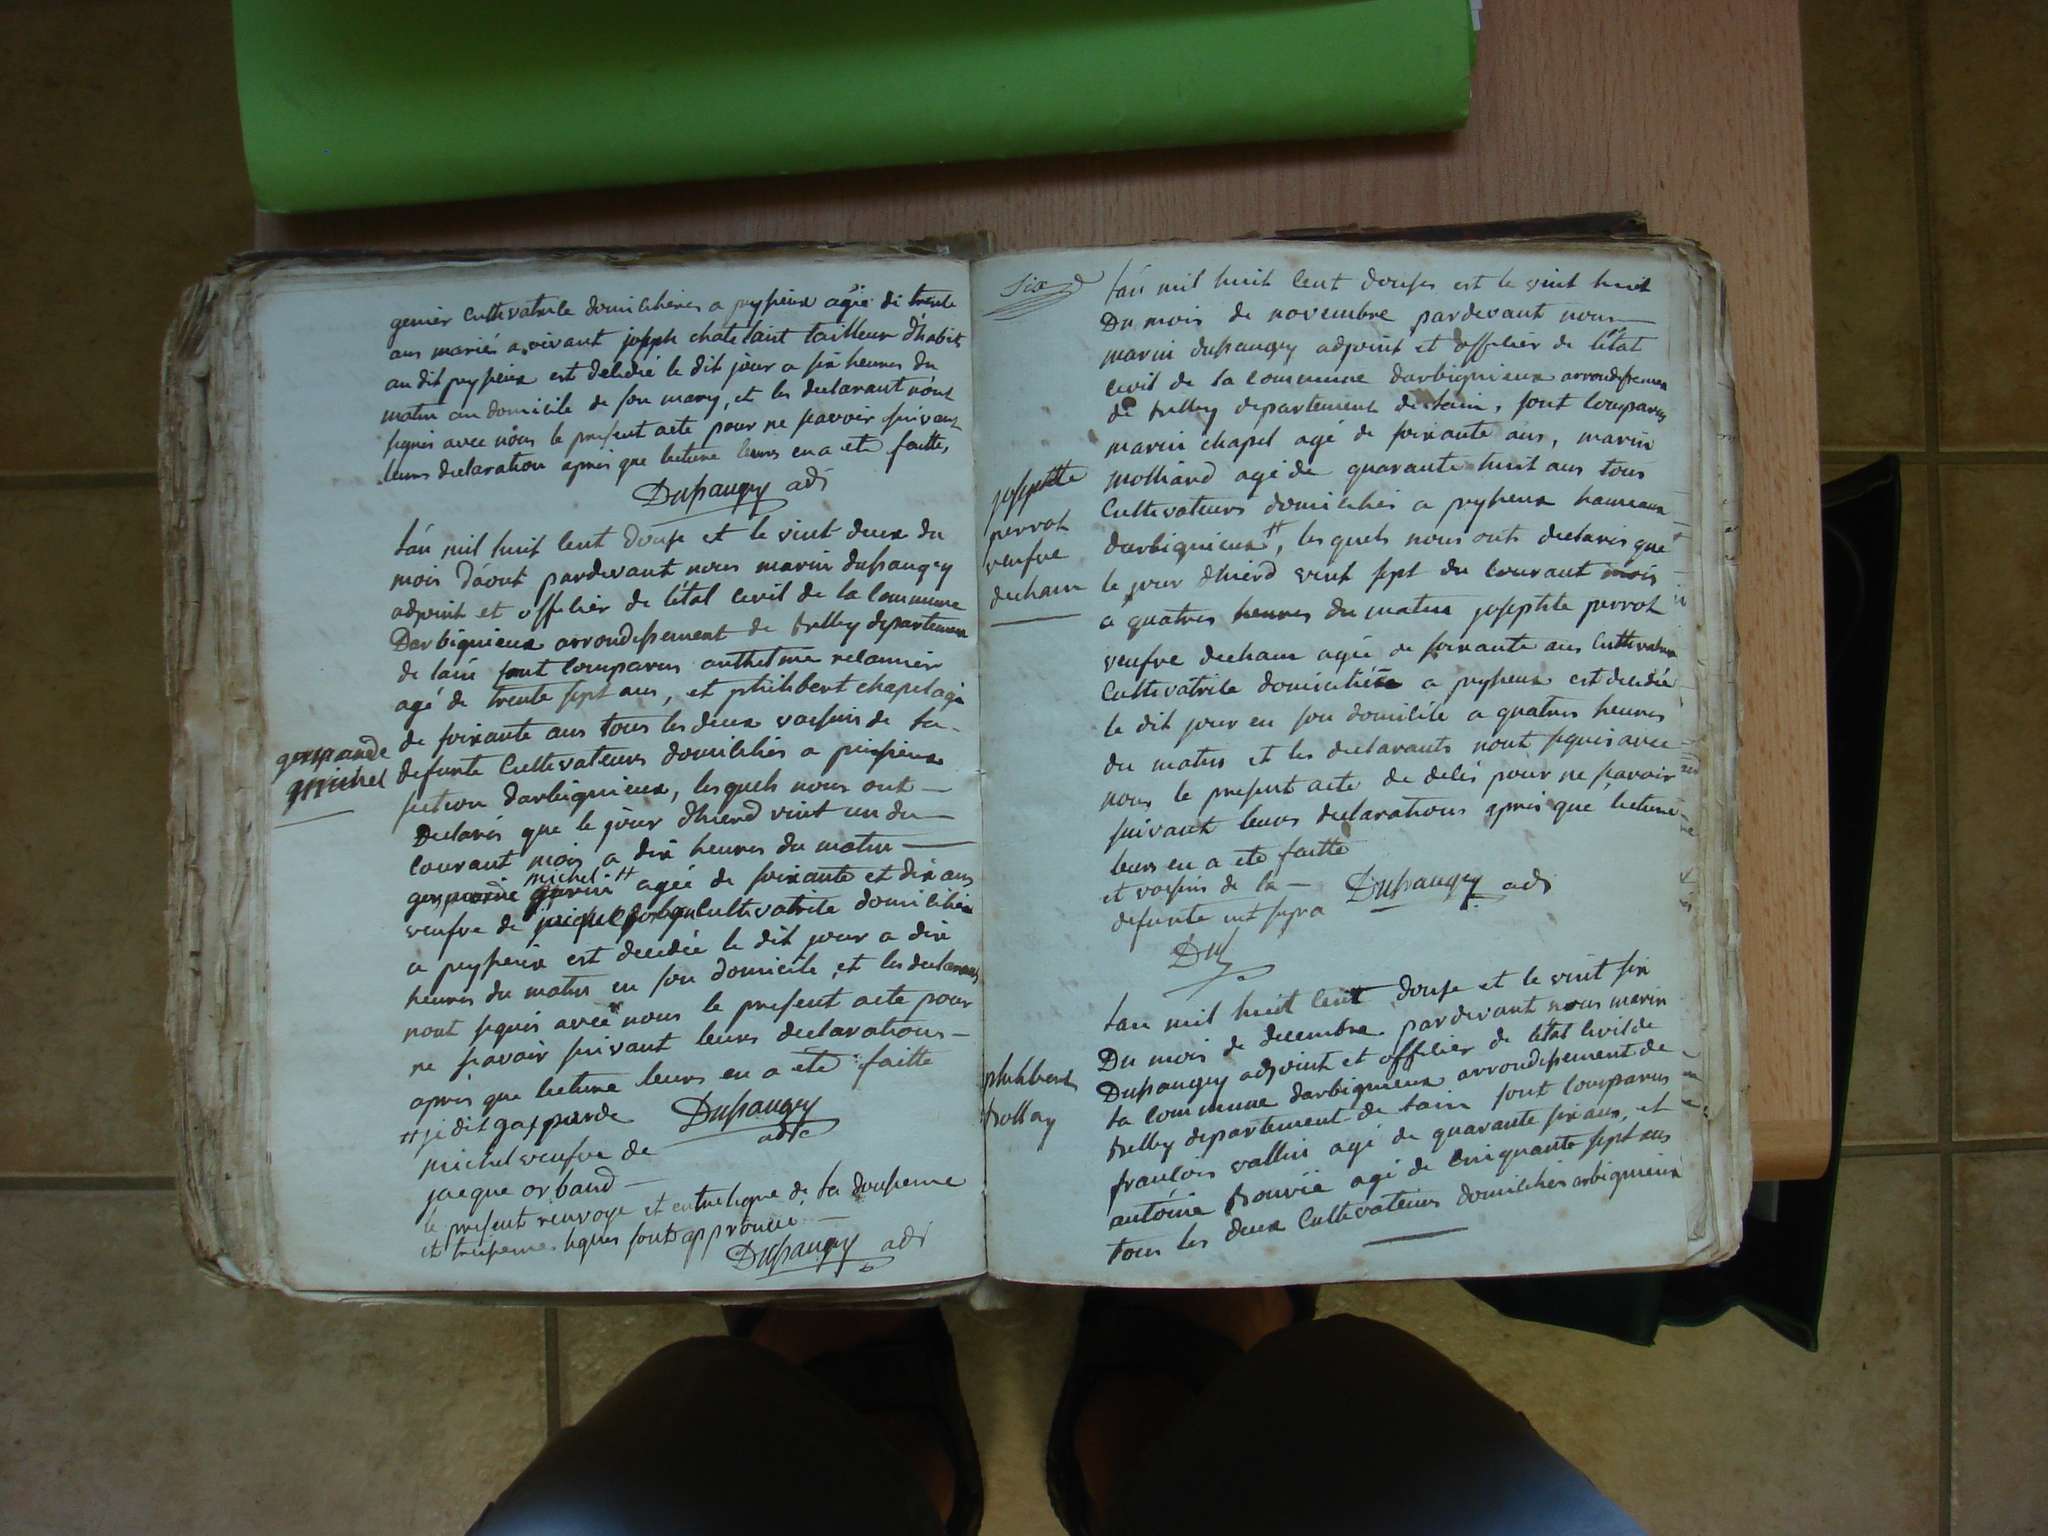 genier Cultivatrile domiliheres a peysieux agée de trente
ans mariés a vivant joseph chatelaint tailleur d'habits
au dit peysieux est deledié le dit jour a six heures du
matin au domicile de son mary, et les declarant n'ont
signés avec nous le present acte pour ne savoir suivant
leurs declaration après que lecture leurs en a été faitte,
Dusaugey adj
L'an mil huit cent douse et le vint deux du
mois d'aout pardevant nous marin dusaugey
adjoint et offilier de l'état civil de la commune
Darbignieux arrondissement de belley departement
de l'ain sont comparus anthelme
agé de trente sept ans, et philibert chapel agé
de soixante ans tous les deux voissins de la
defunte Cultivateurs domilihés a peissieux
section darbignieux, les quels nous ont
Declarés que le jour d'hierd vint un du
courant mois a dix heures du matin
michel #
agée de soixante et dix ans
veufve de Cultivatrile domiliheé
a peyssieux est decedée le dit jour a dix
heures du matin en son domicile, et les declarants
nont signés avec nous le present acte pour
ne savoir suivant leurs declarations
après que lecture leurs en a été faitte
# je dit gasparde Dusaugey
michel veufve de adj
jacque orband
le present renvoye et entreligne de la dousieme
et treisieme lignes sont approuvé
Dusaugey adj
gaspande
michel
Six
L'an mil huit cent douses est le vint huit
Du mois de novembre pardevant nous
marin dusaugey adjoint et offilier de l'état
Civil de la commune darbignieux arrondissemen
de belley departement de lain, sont comparus
marin chapel agé de soixante ans, marin
molliard agé de quarante huit ans tous
Cultivateurs domiliihés a peysieux hameaux
darbignieux #, les quels nous onts declarés que
le jour d'hierd vint sept du courant mois
a quatres heures du matin josephte perrot
veufve decham agée de soixante ans Cultivatrice
Cultivatrile domiciliée a peysieux est decedée
le dit jour en son domicile a quatres heures
du matin et les declarants nont signés avec
nous le present acte de delés pour ne savoir
suivant leurs declarations après que lecture
leurs en a été faitte
et voissins de la Dusaugey adj
defunte
Du
josephtte
perrot
veufve
decham
L'an mil huit cent douse et le vint six
Du mois de decembre pardevant nous marin
Dusaugey adjoint et offilier de l'état Civil de
la commune darbignieux arrondissement de
belley departement de lain sont comparus
franlois vallin agé de quarante six ans, et
antoine bouvié agé de cinquante sept ans
tous les deux Cultivateurs domiliihés arbignieux
philibert
bollay